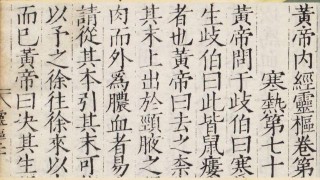 黃帝内經靈樞卷第
寒熱第七十
黃帝問于歧伯曰寒
生歧伯曰此皆鼠瘻
者也黃帝曰去之柰
其末上出於頸腋之
肉而外爲膿血者易
請從其本引其末可
以予之徐往徐來以
而已黃帝曰决其生